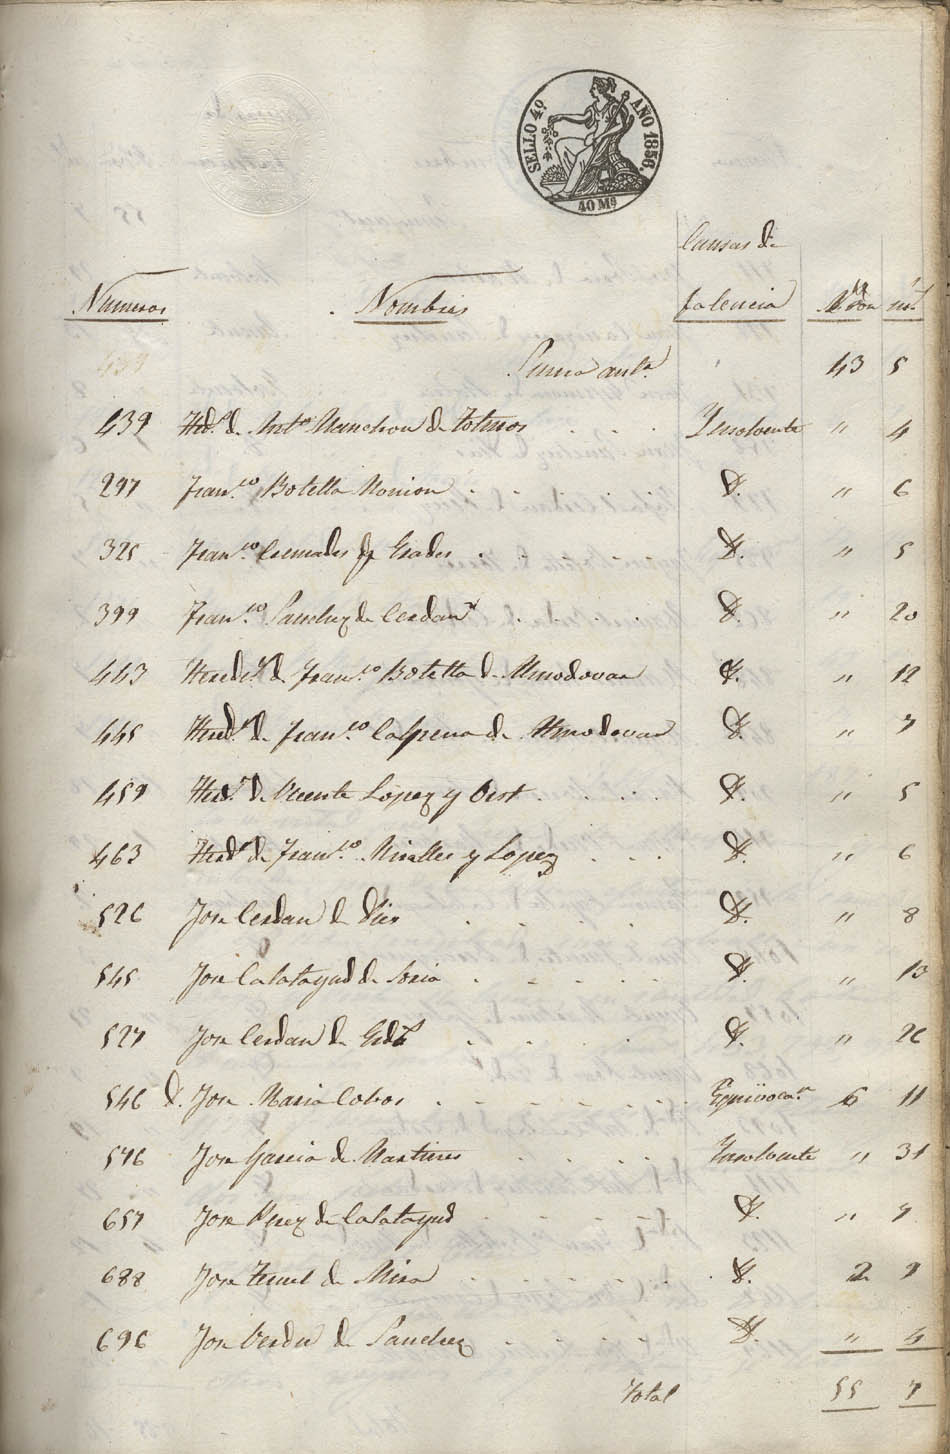 SELLO 4º AÑO 1856. 40 Mˢ
Causas de
Numeros Nombres falencia Rˢ von mˢ
Suma antʳ 43 5
439 Hedˢ de Antº Manchon de Tolmos Ynsolvente " 4
297 Franᶜᵒ Botella Monion D. " 6
325 Franᶜᵒ Cremades de Grades D. " 5
399 Franᶜᵒ Sanchez de Cerdan D. " 20
443 Heredˢ de Franᶜᵒ Botella de Almodovar D. " 12
445 Heredˢ de Franᶜᵒ Calpena de Almodovar D. " 7
459 Hedˢ de Vicente Lopez y Orst D. " 5
463 Hedˢ de Franᶜᵒ Miralles y Lopez D. " 6
526 Jose Cerdan de Dies D. " 8
545 Jose Calatayud de Soria D. " 13
527 Jose Cerdan de D. " 26
546 D. Jose Maria Cobos Equivocaⁿ 6 11
576 Jose Garcia de Martines Ynsolvente " 31
657 Jose Perez de Calatayud D. " 7
688 Jose Teruel de Mira D. 2 9
696 Jose Verdu de Sanchez D. " 4
Total 55 7